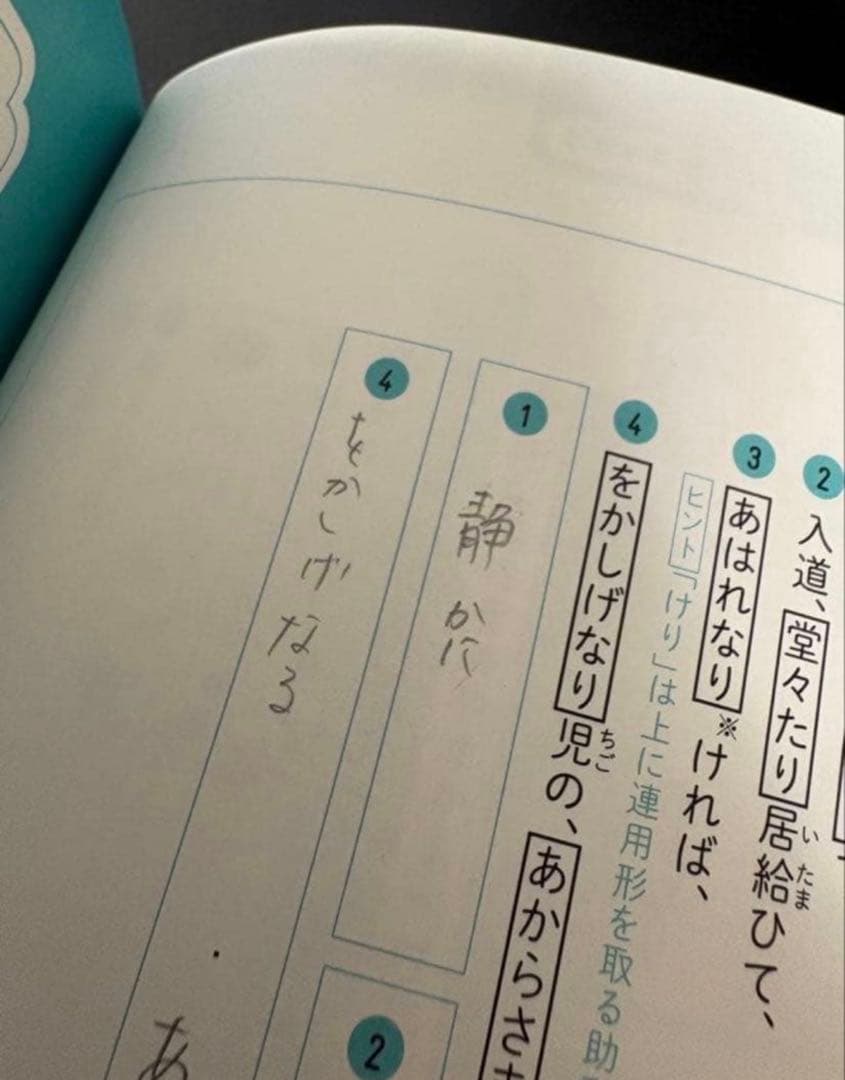 2
入道、堂々たり居給ひて、
いたま
3
あはれなり※ければ、
ヒント「けり」は上に連用形を取る助
4
をかしげなり児の、あからさ
ちご
1
静かに
2
4
をかしげなる
あ